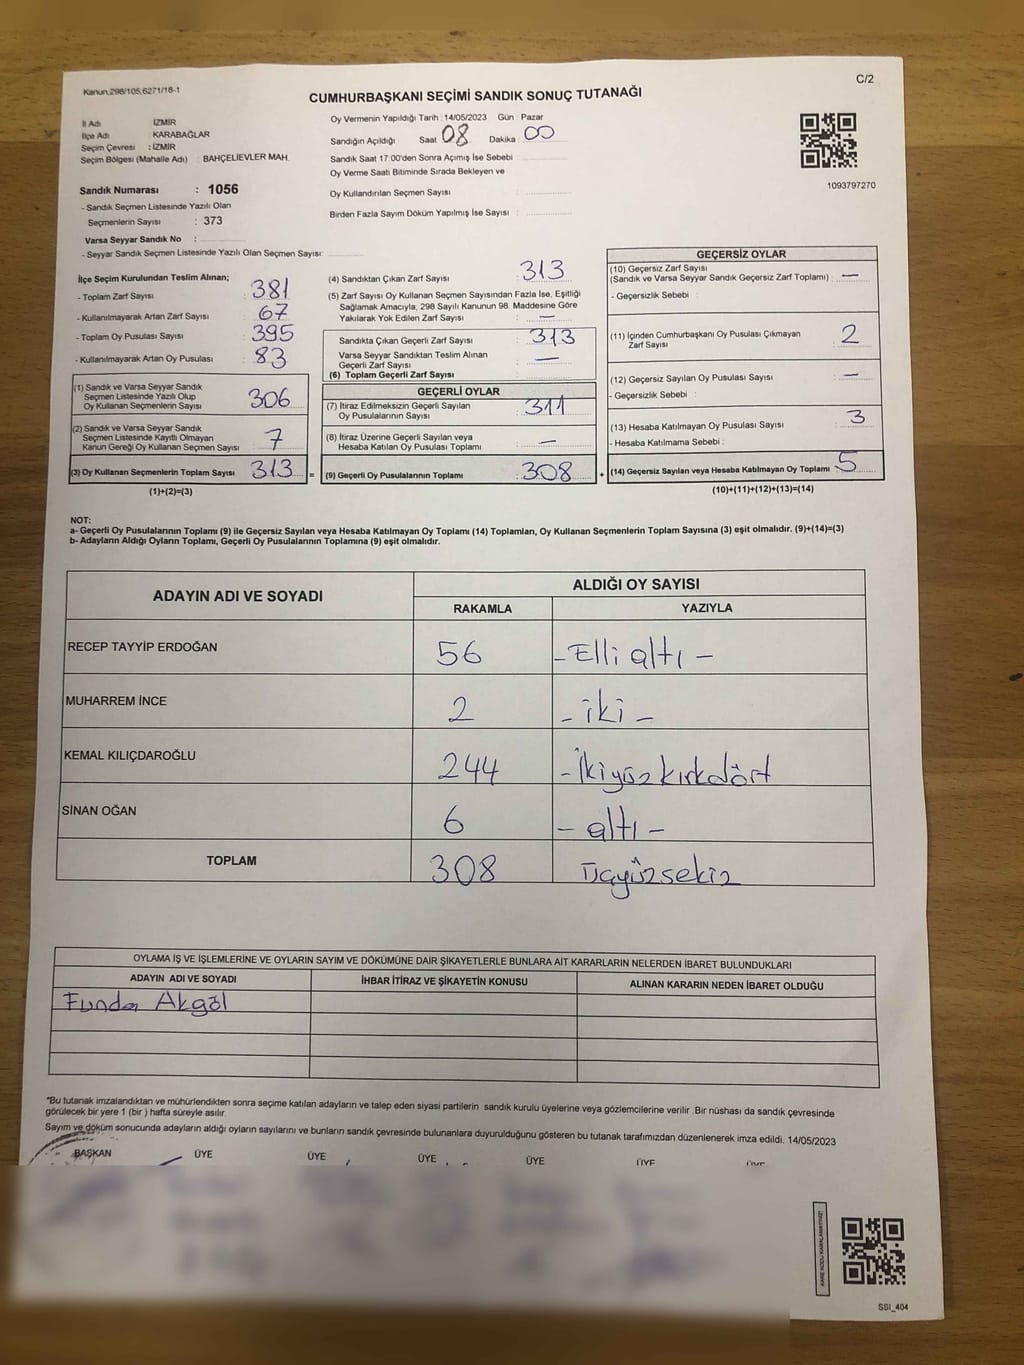 Kanun,298/105,6271/18-1
C/2
CUMHURBAŞKANI SEÇİMİ SANDIK SONUÇ TUTANAĞI
İl Adı İZMİR
İlçe Adı KARABAĞLAR
Seçim Çevresi : İZMİR
Seçim Bölgesi (Mahalle Adı) : BAHÇELİEVLER MAH.
Sandık Numarası : 1056
- Sandık Seçmen Listesinde Yazılı Olan
Seçmenlerin Sayısı : 373
Varsa Seyyar Sandık No :
- Seyyar Sandık Seçmen Listesinde Yazılı Olan Seçmen Sayısı:
Oy Vermenin Yapıldığı Tarih : 14/05/2023 Gün : Pazar
Sandığın Açıldığı Saat 08 Dakika : 00
Sandık Saat 17:00'den Sonra Açımış İse Sebebi :
Oy Verme Saati Bitiminde Sırada Bekleyen ve
Oy Kullandırılan Seçmen Sayısı :
Birden Fazla Sayım Döküm Yapılmış İse Sayısı :
1093797270
İlçe Seçim Kurulundan Teslim Alınan;
- Toplam Zarf Sayısı : 381
- Kullanılmayarak Artan Zarf Sayısı : 67
- Toplam Oy Pusulası Sayısı : 395
- Kullanılmayarak Artan Oy Pusulası : 83
(1) Sandık ve Varsa Seyyar Sandık
Seçmen Listesinde Yazılı Olup
Oy Kullanan Seçmenlerin Sayısı : 306
(2) Sandık ve Varsa Seyyar Sandık
Seçmen Listesinde Kayıtlı Olmayan
Kanun Gereği Oy Kullanan Seçmen Sayısı : 7
(3) Oy Kullanan Seçmenlerin Toplam Sayısı : 313 =
(1)+(2)=(3)
(4) Sandıktan Çıkan Zarf Sayısı : 313
(5) Zarf Sayısı Oy Kullanan Seçmen Sayısından Fazla İse, Eşitliği
Sağlamak Amacıyla; 298 Sayılı Kanunun 98. Maddesine Göre
Yakılarak Yok Edilen Zarf Sayısı : —
Sandıkta Çıkan Geçerli Zarf Sayısı : 313
Varsa Seyyar Sandıktan Teslim Alınan
Geçerli Zarf Sayısı : —
(6) Toplam Geçerli Zarf Sayısı :
GEÇERLİ OYLAR
(7) İtiraz Edilmeksizin Geçerli Sayılan
Oy Pusulalarının Sayısı : 311
(8) İtiraz Üzerine Geçerli Sayılan veya
Hesaba Katılan Oy Pusulası Toplamı : —
(9) Geçerli Oy Pusulalarının Toplamı : 308 +
GEÇERSİZ OYLAR
(10) Geçersiz Zarf Sayısı
(Sandık ve Varsa Seyyar Sandık Geçersiz Zarf Toplamı) : —
- Geçersizlik Sebebi :
(11) İçinden Cumhurbaşkanı Oy Pusulası Çıkmayan
Zarf Sayısı : 2
(12) Geçersiz Sayılan Oy Pusulası Sayısı : —
- Geçersizlik Sebebi :
(13) Hesaba Katılmayan Oy Pusulası Sayısı : 3
- Hesaba Katılmama Sebebi :
(14) Geçersiz Sayılan veya Hesaba Katılmayan Oy Toplamı : 5
(10)+(11)+(12)+(13)=(14)
NOT:
a- Geçerli Oy Pusulalarının Toplamı (9) ile Geçersiz Sayılan veya Hesaba Katılmayan Oy Toplamı (14) Toplamları, Oy Kullanan Seçmenlerin Toplam Sayısına (3) eşit olmalıdır. (9)+(14)=(3)
b- Adayların Aldığı Oyların Toplamı, Geçerli Oy Pusulalarının Toplamına (9) eşit olmalıdır.
ADAYIN ADI VE SOYADI ALDIĞI OY SAYISI
RAKAMLA YAZIYLA
RECEP TAYYİP ERDOĞAN 56 -Elli altı -
MUHARREM İNCE 2 - iki -
KEMAL KILIÇDAROĞLU 244 - İkiyüzkırkdört
SİNAN OĞAN 6 - altı -
TOPLAM 308 Üçyüzsekiz
OYLAMA İŞ VE İŞLEMLERİNE VE OYLARIN SAYIM VE DÖKÜMÜNE DAİR ŞİKAYETLERLE BUNLARA AİT KARARLARIN NELERDEN İBARET BULUNDUKLARI
ADAYIN ADI VE SOYADI İHBAR İTİRAZ VE ŞİKAYETİN KONUSU ALINAN KARARIN NEDEN İBARET OLDUĞU
Funda Akgöl
*Bu tutanak imzalandıktan ve mühürlendikten sonra seçime katılan adayların ve talep eden siyasi partilerin sandık kurulu üyelerine veya gözlemcilerine verilir .Bir nüshası da sandık çevresinde
görülecek bir yere 1 (bir ) hafta süreyle asılır.
Sayım ve döküm sonucunda adayların aldığı oyların sayılarını ve bunların sandık çevresinde bulunanlara duyurulduğunu gösteren bu tutanak tarafımızdan düzenlenerek imza edildi. 14/05/2023
BAŞKAN ÜYE ÜYE ÜYE ÜYE ÜYE ÜYE
KARE KODU KARALAMAYINIZ!
SSI_404